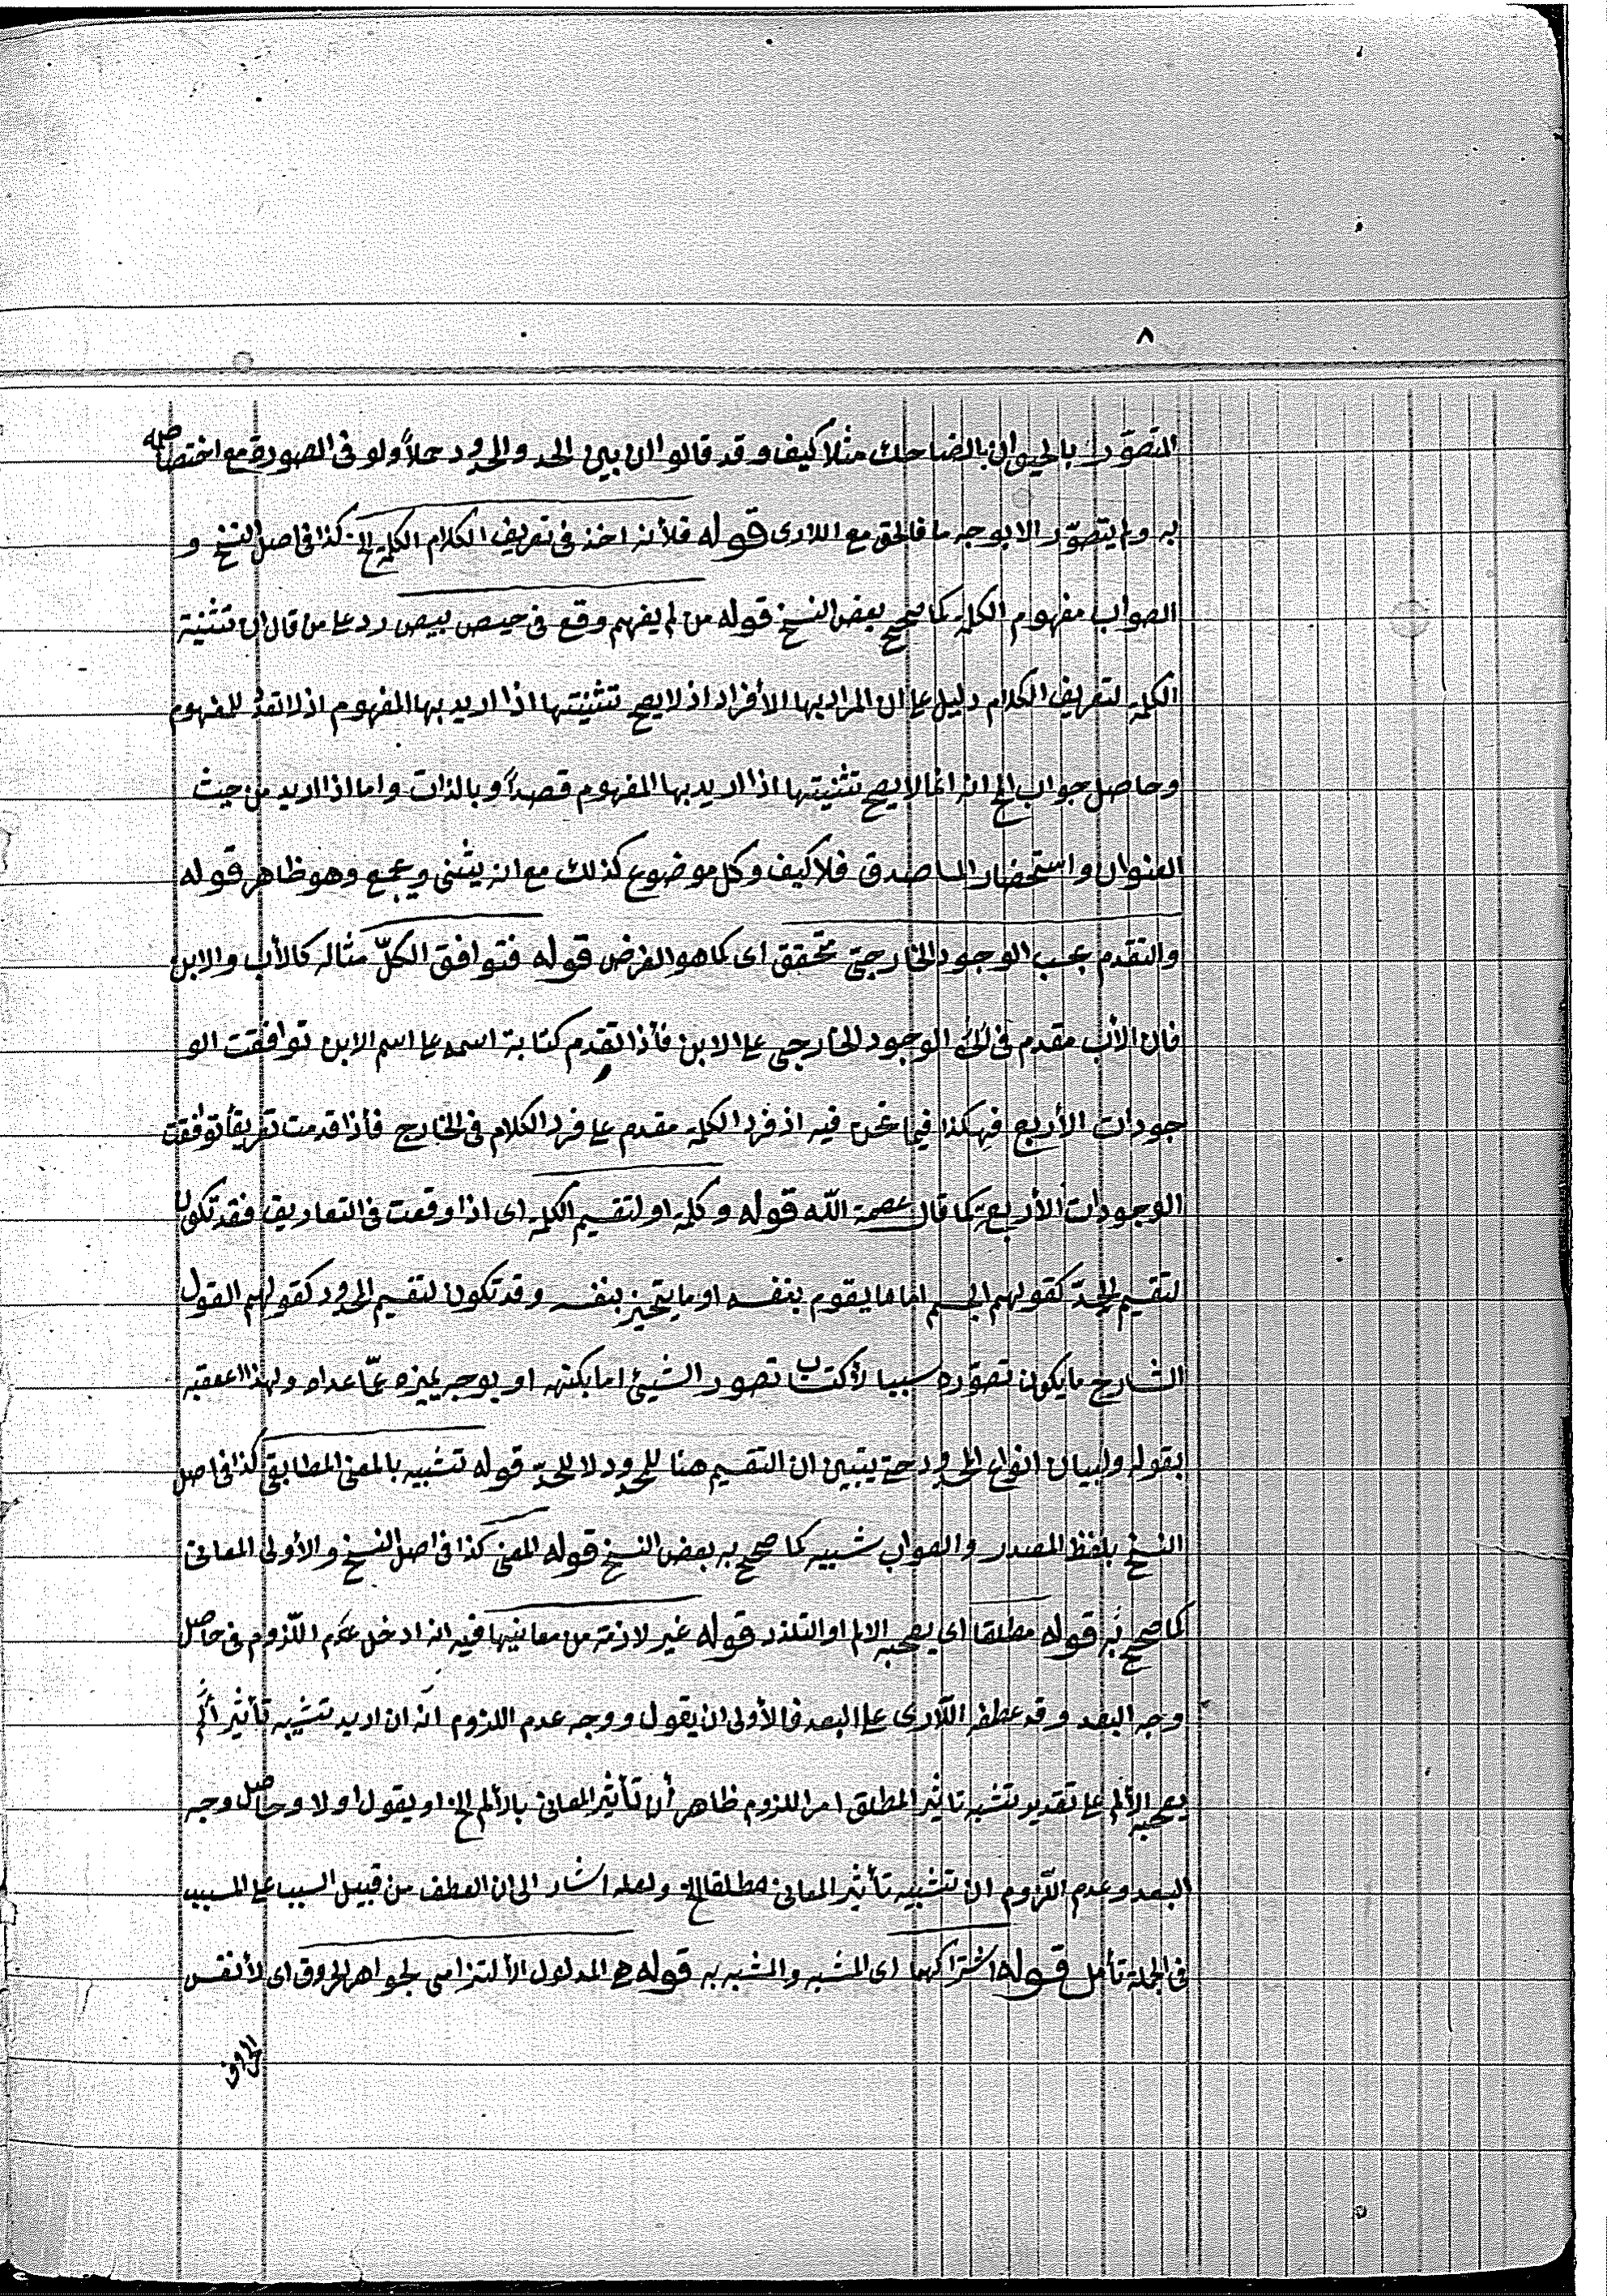 ٨
التصوّر بالحيوان بالضاحك مثلاً كيف وقد قالوا ان بين الحد والمحدود حملاً ولو فى الصورة مع اختصاصه
به ولم يتصوّر الا بوجه ما فالحق مع اللارى قوله فلأنه اخذ فى تعريف الكلام الكلمة الخ كذا فى اصل النسخ و
الصواب مفهوم الكلمة كما صحح بعض النسخ قوله من لم يفهم وقع فى حيص بيص رد على من قال ان تثنية
الكلمة لتعريف الكلام دليل على ان المراد بها الأفراد اذ لا يصح تثنيتها اذا اريد بها المفهوم اذ لا تعدد للمفهوم
وحاصل جواب المح انه انما لا يصح تثنيتها اذا اريد بها المفهوم قصداً وبالذات واما اذا اريد من حيث
العنوان واستحضار الماصدق فلا كيف وكل موضوع كذلك مع انه يثنى ويجمع وهو ظاهر قوله
والتقدم بحسب الوجود الخارجى متحقق اى كما هو الفرض قوله فتوافق الكلّ مثاله كالأب والابن
فان الأب مقدم فى الوجود الخارجى على الابن فأذا تقدم كتابة اسمه على اسم الابن توافقت الو
جودات الأربع فهكذا فيما نحن فيه اذ فرد الكلمة مقدم على فرد الكلام فى الخارج فأذا قدمت تعريفاً توافقت
الوجودات الأربعة كما قال عصمة الله قوله وكلمة او لتقسيم الكلمة اى اذا وقعت فى التعاريف فقد تكون
لتقسيم الحدّ كقولهم الجسم اما ما يقوم بنفسه او ما يتحيز بنفسه وقد تكون لتقسيم المحدود كقولهم القول
الشارح ما يكون تصوّره سببا لأكتساب تصور الشيئ اما بكنهه او بوجه يميزه عمّا عداه ولهذا اعقبه
بقوله ولبيان انواع المحدود حتى يتبين ان التقسيم هنا للمحدود لا للحد قوله تشبيه بالمعنى المطابقى كذا فى اصل
النسخ بلفظ المصدر والصواب شبيه كما صحح به بعض النسخ قوله المعنى كذا فى اصل النسخ والأولى المعانى
كما صحح به قوله مطلقا اى يصحبه الالم او التلذذ قوله غير لازمة من معانيها فيه انه ادخل عدم اللّزوم فى حاصل
وجه البعد وقد عطفه اللّارى على البعد فالأولى ان يقول ووجه عدم اللزوم انه ان اريد تشبيه تأثير ألم
يصحبه الألم على تقدير تشبيه تاثير المطلق امر اللزوم ظاهر أن تأثير المعانى بالألم الخ او يقول اولا وحاصل وجه
البعد وعدم اللّزوم ان تشبيه تأثير المعانى مطلقا الخ ولعله اشار الى ان العطف من قبيل السبب على المسبب
فى الجملة تأمل قوله اشتراكهما اى المشبه والمشبه به قوله هو المدلول الألتزامى لجواهر الحروف اى لأنفس
الحروف